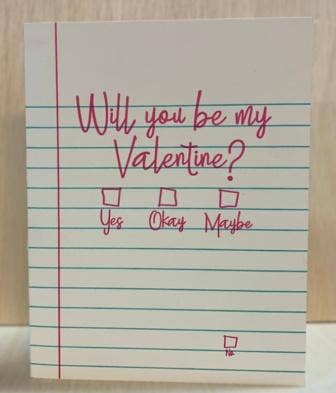 Will you be my
Valentine?
Yes Okay Maybe
No